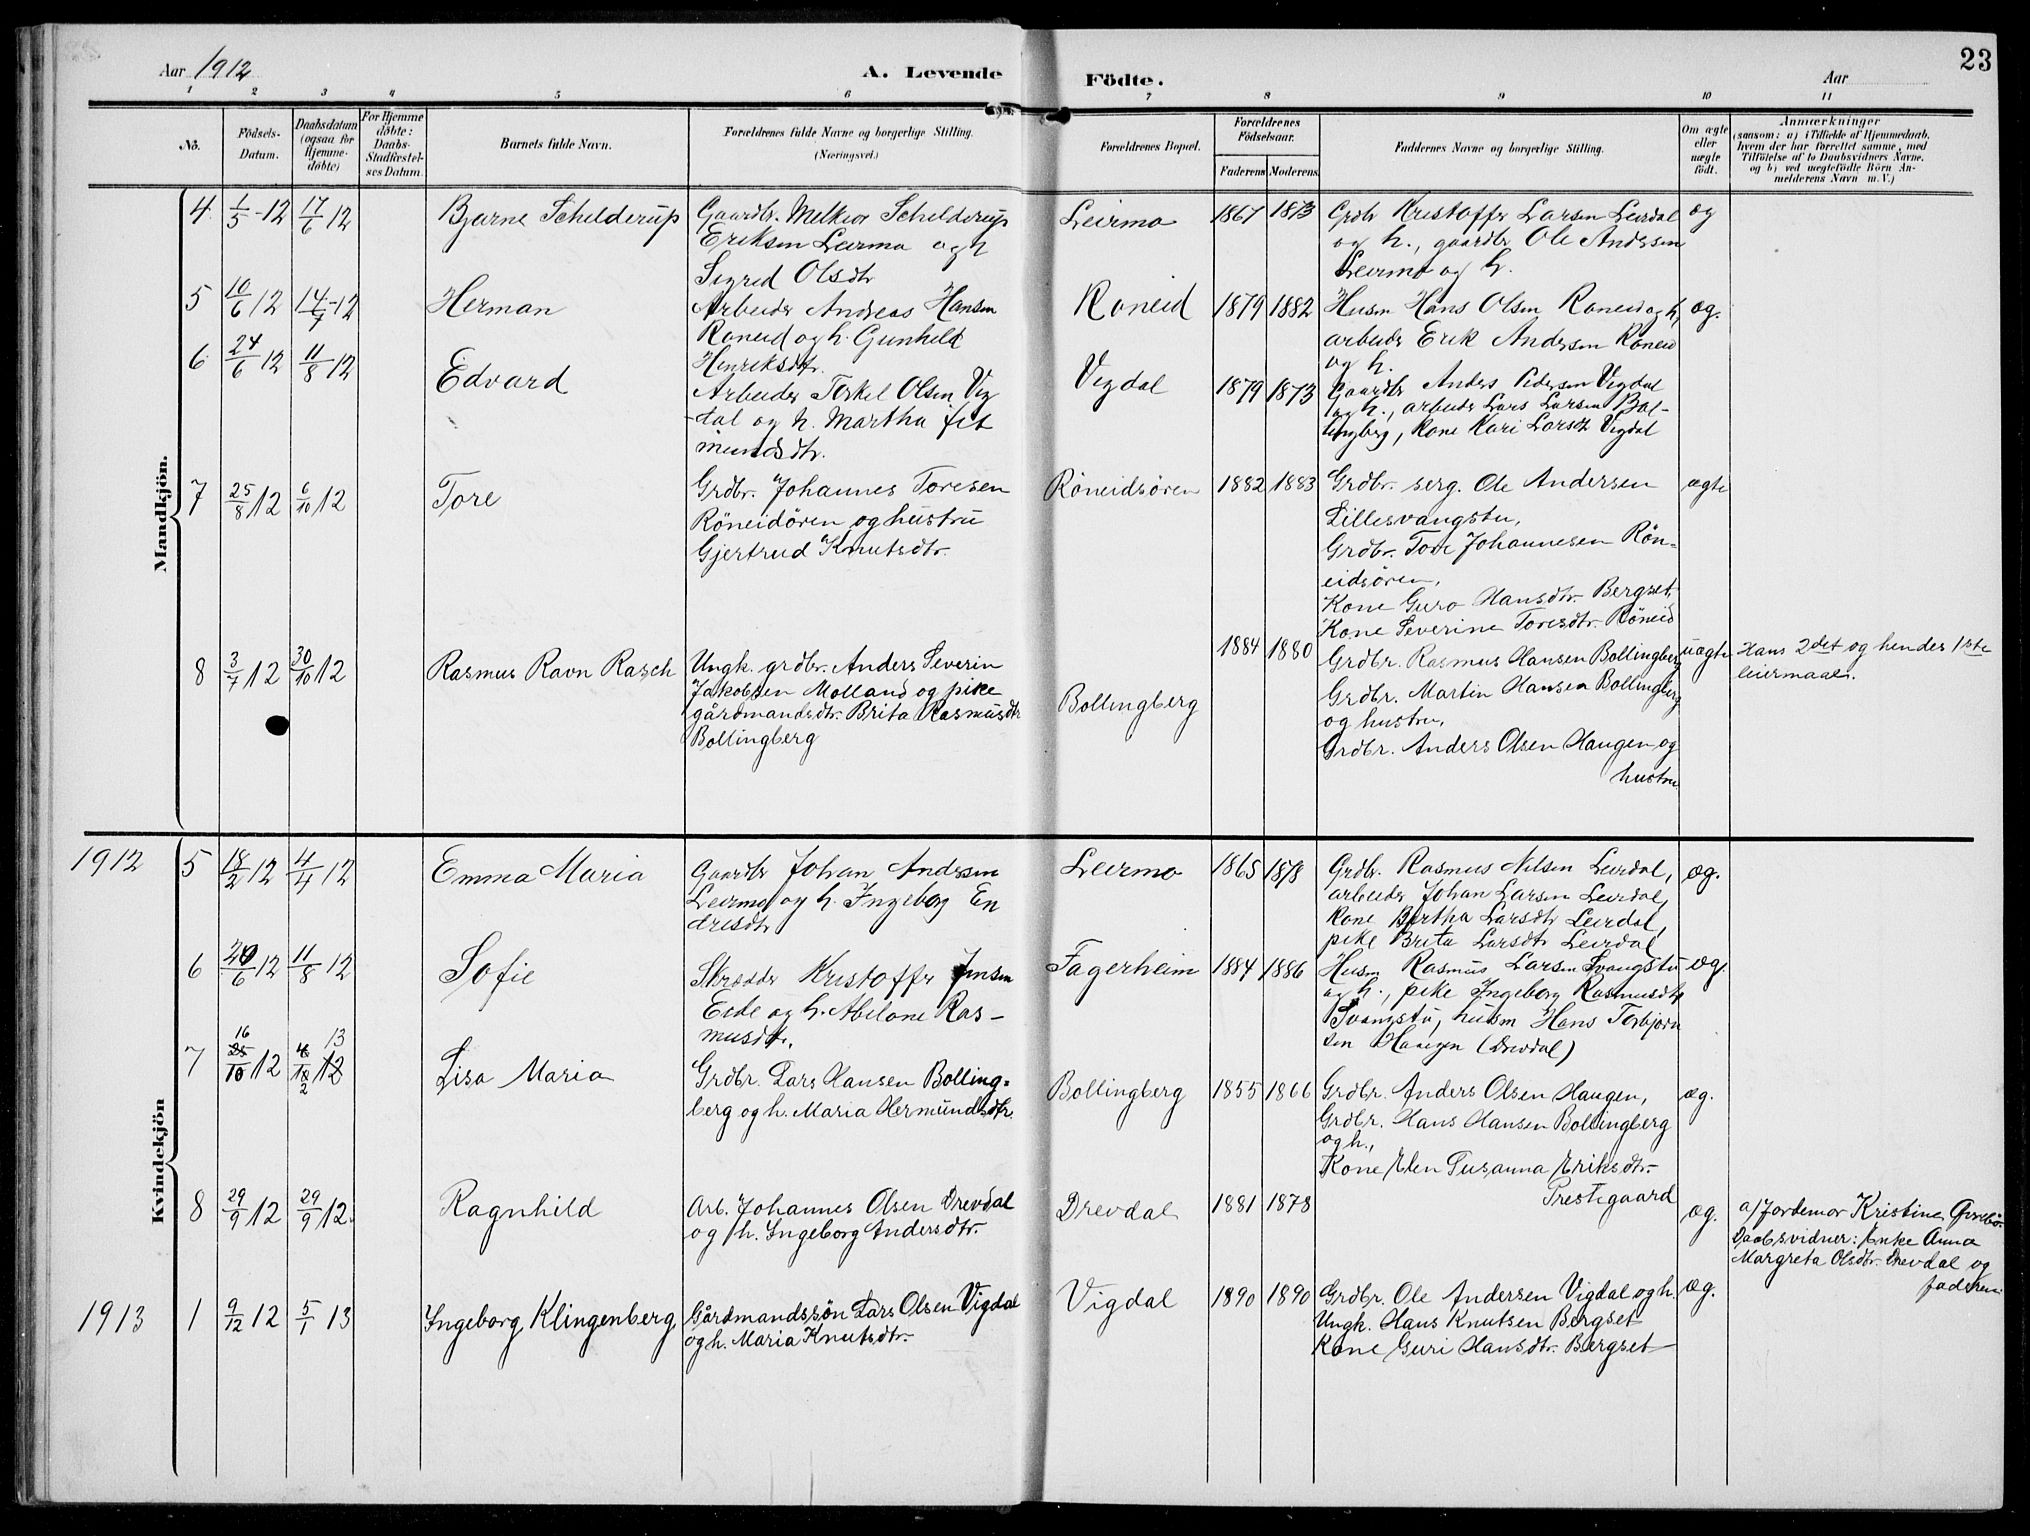 23
Aar 1912 A. Levende Födte. Aar
1 2 3 4 5 6 7 8 9 10 11
No. Födsels-Datum. Daabsdatum (ogsaa för Hjemme-döbte) For Hjemme döbte: Daabs-Stadfæstel-ses Datum. Barnets fulde Navn. Forældrenes fulde Navne og borgerlige Stilling. (Næringsvei.) Forældrenes Bopæl. Forældrenes Födselsaar. Faderens Moderens. Faddernes Navne og borgerlige Stilling. Om ægte eller uægte födt. Anmærkninger (saasom: a) i Tilfælde af Hjemmedaab, hvem der har forrettet samme, med Tilföielse af to Daabsvidners Navne, og b) ved uegtefödte Börn An-melderens Navn m. V.)
Mandkjön.
4. 1/5-12 17/6 12 Bjarne Schelderup Gaardbr. Melkior Schelderup Leirmo 1867 1873 Grdbr Kristoffer Larsen Leirdal æg
Eriksen Leirmo og h og h., gaardbr Ole Andersen
Sigrid Olsdtr Leirmo og h.
5 10/6 12 14/7-12 Herman Arbeider Andreas Hansen Roneid 1879 1882 Husm Hans Olsen Roneid og h, æg.
Roneid og h. Gunhild arbeider Erik Andersen Roneid
Henriksdtr. og h.
6 24/6 12 11/8 12 Edvard Arbeider Torkel Olsen Vig Vigdal 1879 1873 Gaardbr Anders Pedersen Vigdal
-dal og h. Martha Jet og h., arbeider Lars Larsen Bol-
mundsdtr. lingberg, Kone Kari Larsdt Vigdal
7 25/8 12 6/10 12 Tore Grdbr. Johannes Toresen Röneidsören 1882 1883 Grdbr. serg. Ole Andersen ægte
Röneidören og hustru Lillesvangstu,
Gjertrud Knutsdtr. Grdbr. Tore Johannesen Rön-
eidsören,
Kone Guro Hansdtr. Bergset,
Kone Severine Toresdtr. Röneid
8 3/7 12 30/10 12 Rasmus Ravn Rasch Ungk. grdbr. Anders Severin Bollingberg 1884 1880 Grdbr. Rasmus Hansen Bollingberg uægte Hans 2det og hendes 1ste
Jakobsen Molland og pike Grdbr. Martin Hansen Bollingberg leiermaal.
gårdmandsdtr. Brita Rasmusdtr og hustru,
Bollingberg Grdbr. Anders Olsen Haugen og
hustru
Kvindekjön
1912 5 18/2 12 4/4 12 Emma Maria Gaardbr Johan Andersen Leirmo 1865 1878 Grdbr. Rasmus Nilsen Leirdal, æg.
Leirmo og h. Ingeborg En arbeider Johan Larsen Leirdal,
dresdtr Kone Bertha Larsdtr Leirdal,
pike Brita Larsdtr Leirdal
6 20/6 12 11/8 12 Sofie Skrædder Kristoffer Jensen Fagerheim 1884 1886 Husm Rasmus Larsen Svangstu æg.
Eide og h. Abelone Ras- og h., pike Ingeborg Rasmusdtr
musdt. Svangstu, husm Hans Torbjörn
sen Haugen (Drevdal)
7 16/10 12 13/2 Lisa Maria Grdbr. Lars Hansen Bolling- Bollingberg 1855 1866 Grdbr. Anders Olsen Haugen, æg.
berg og h. Maria Hermundsdtr. Grdbr. Hans Hansen Bollingberg
og h.,
Kone Elen Susanna Eriksdtr.
Prestegaard
8 29/9 12 29/9 12. Ragnhild Arb. Johannes Olsen Drevdal Drevdal 1881 1878 æg. a/ Jordemor Kristine
og h. Ingeborg Andersdtr. Daabsvidner: Enke Anna
Margreta Olsdtr. Drevdal og
faderen
1913 1 9/12 12 5/1 13 Ingeborg Klingenberg Gårdmandssön Lars Olsen Vigdal Vigdal 1890 1890 Grdbr. Ole Andersen Vigdal og h. æg.
og h. Maria Knutsdtr. Ungk. Hans Knutsen Bergset
Kone Guri Hansdtr. Bergset